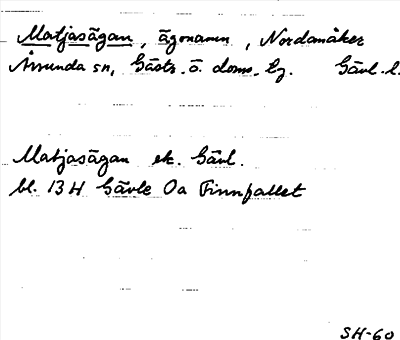 Matjasägan, ägonamn, Nordanåker
Årsunda sn, Gästr. ö. doms. lg. Gävl. l.
Matjasägan ek. Gävl.
bl. 13 H Gävle Oa Finnfallet
SH-60